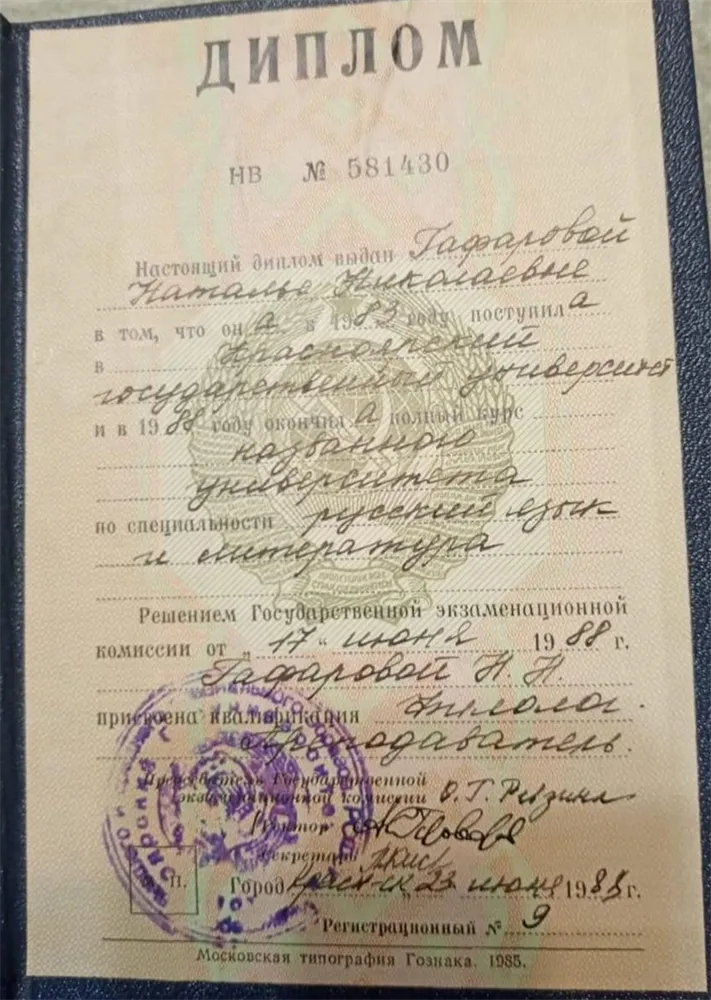 ДИПЛОМ
НВ № 581430
Настоящий диплом выдан Гафаровой
Наталье Николаевне
в том, что он а в 1983 году поступил а
в Красноярский
государственный университет
и в 1988 году окончил а полный курс
названного
университета
по специальности русский язык
и литература
Решением Государственной экзаменационной
комиссии от „17“ июня 1988 г.
Гафаровой Н. Н.
присвоена квалификация Филолог.
Преподаватель.
Председатель Государственной
экзаменационной комиссии О. Г. Ревзина
Ректор
Секретарь
М.П.
Город Красн-ск „23 июня 1988 г.
Регистрационный № 9
Московская типография Гознака. 1985.